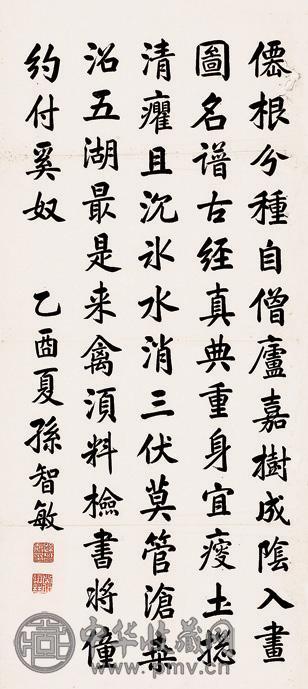 僊根分種自僧廬嘉樹成陰入畫
圖名譜古經真典重身宜瘦土揔
清癯且沉氷水消三伏莫管滄桑
沼五湖最是来禽湏料檢書將僮
約付奚奴
乙酉夏孫智敏
中华收藏网
www.pmv.cn